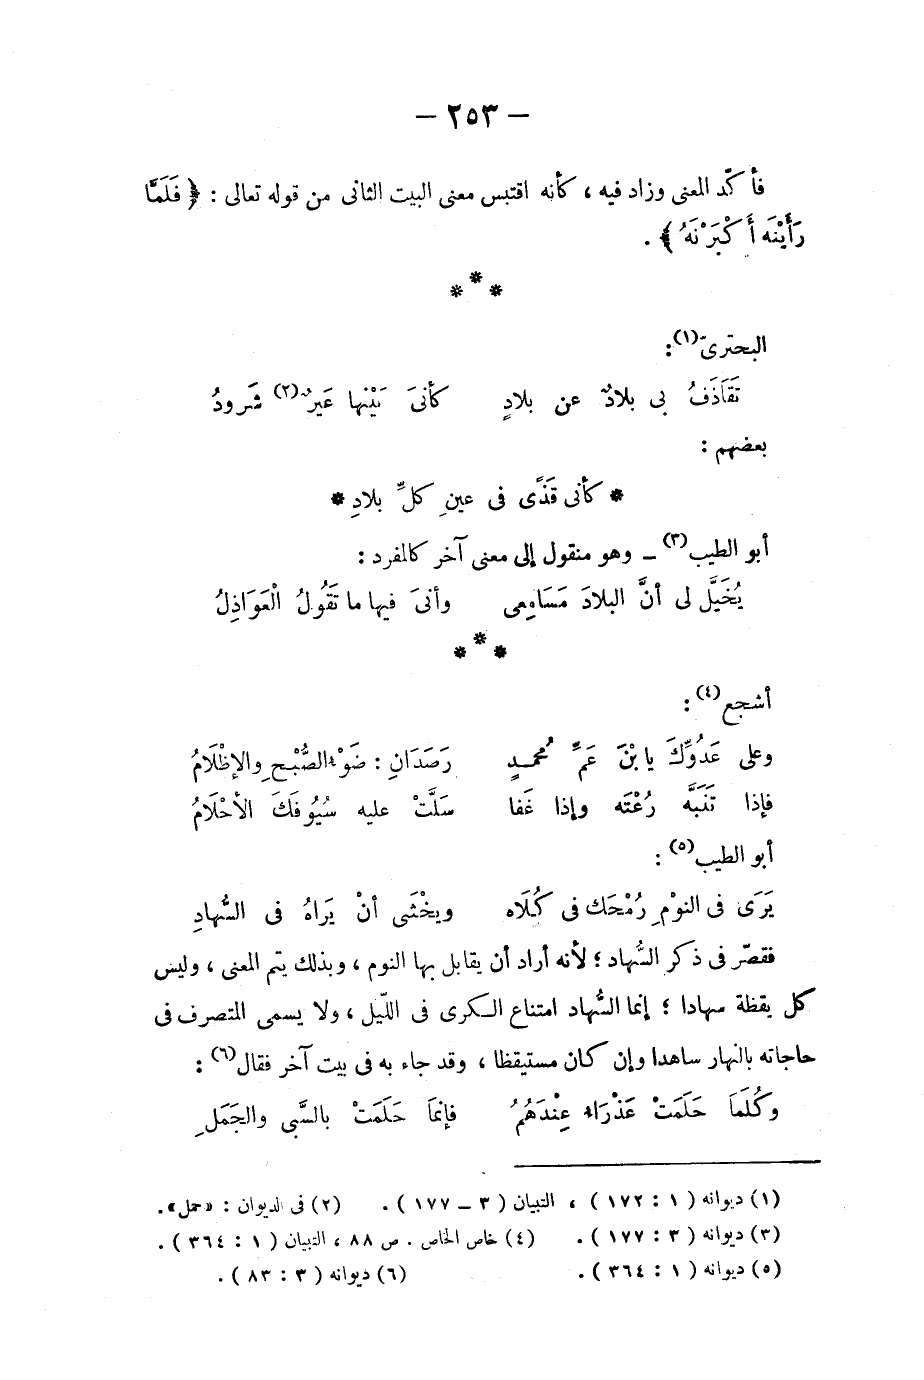 — ٢٥٣ —
فأكّد المعنى وزاد فيه ، كأنه اقتبس معنى البيت الثانى من قوله تعالى : ﴿ فَلَمَّا
رَأَيْنَه أَكْبَرْنَهُ ﴾ .
* * *
البحترىّ(١) :
تَقَاذَفُ بى بلادٌ عن بلادٍ كأنىَ بَيْنها عَيرٌ(٢) شَرودُ
بعضهم :
* كأنى قَذًى فى عينِ كلِّ بلادِ *
أبو الطيب(٣) ـ وهو منقول إلى معنى آخر كالمفرد :
يُخَيَّل لى أنَّ البلادَ مَسَامِعى وأنىَ فيها ما تَقُولُ الْعَوَاذِلُ
* * *
أشجع(٤) :
وعلى عَدُوِّكَ يابْنَ عَمِّ مُحمـدٍ رَصَدَانِ : ضَوْءالصُّبْحِ والإظْلَامُ
فإذا تَنَبَّه رُعْتَه وإذا غَفا سَلَّتْ عليه سُيُوفَكَ الأحْلَامُ
أبو الطيب(٥) :
يَرَى فى النوْمِ رُمْحَك فى كُلَاه ويخْشَى أنْ يَراهُ فى السُّهادِ
فقصّر فى ذكر السُّهاد ؛ لأنه أراد أن يقابل بها النوم ، وبذلك يتم المعنى ، وليس
كل يقظة سهادا ؛ إنما السُّهاد امتناع الـكرى فى اللّيل ، ولا يسمى المتصرف فى
حاجاته بالنهار ساهدا وإن كان مستيقظا ، وقد جاء به فى بيت آخر فقال(٦) :
وكُلمَا حَلَمَتْ عَذْرَاء عِنْدَهُمُ فإنمَا حَلَمَتْ بالسَّبى والجَمَلِ
(١) ديوانه ( ١ : ١٧٢ ) ، التبيان ( ٣ ـ ١٧٧ ) . (٢) فى الديوان : «حمل» .
(٣) ديوانه ( ٣ : ١٧٧ ) . (٤) خاص الخاص . ص ٨٨ ، التبيان ( ١ : ٣٦٤ ) .
(٥) ديوانه ( ١ : ٣٦٤ ) . (٦) ديوانه ( ٣ : ٨٣ ) .